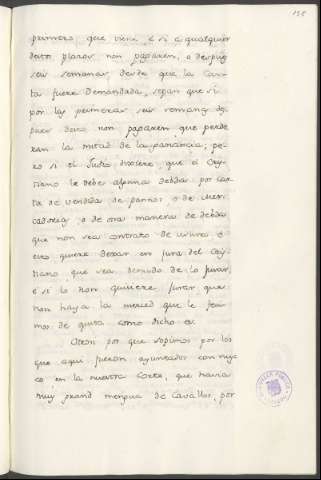 135
primero que viene, e si a qualquier
destos plazos non pagaren, o despues
seis semanas desde que la car-
ta fuere demandada, sepan que si
por las primeras seis semanas des-
pues desto non pagaren, que perde-
ran la mitad de la ganancia; pe-
ro si el Judio dixiere que el Crip-
tiano le debe alguna debda por car-
ta de vendida de pannos, o de
o de otra manera de debda
que non sea contrato de usura, e
esto quiere dexar en jura del Crip-
tiano que sea tenudo de lo jurar,
e si lo non quisiere jurar que
non haya la merced que le feci-
mos de quita como dicho es.
Otrosi por que sopimos por los
que aqui fueron ayuntados connus-
co en la nuestra Corte, que havia
muy grand mengua de Cavallos, por